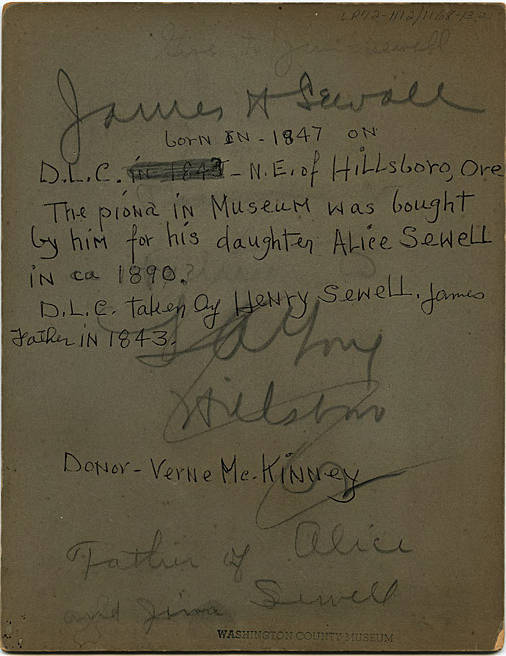 LR92-1112/1168-132
Give to Jim Sewell
James H Sewall
born IN - 1847 ON
D.L.C. in 1843 - N.E. of Hillsboro, Ore
The piona in Museum was bought
by him for his daughter Alice Sewell
in ca 1890.
D.L.C. taken by Henry Sewell. James
Father in 1843.
Hillsboro
Donor - Verne Mc. Kinney
Father of Alice
and Jim Sewell
WASHINGTON COUNTY MUSEUM